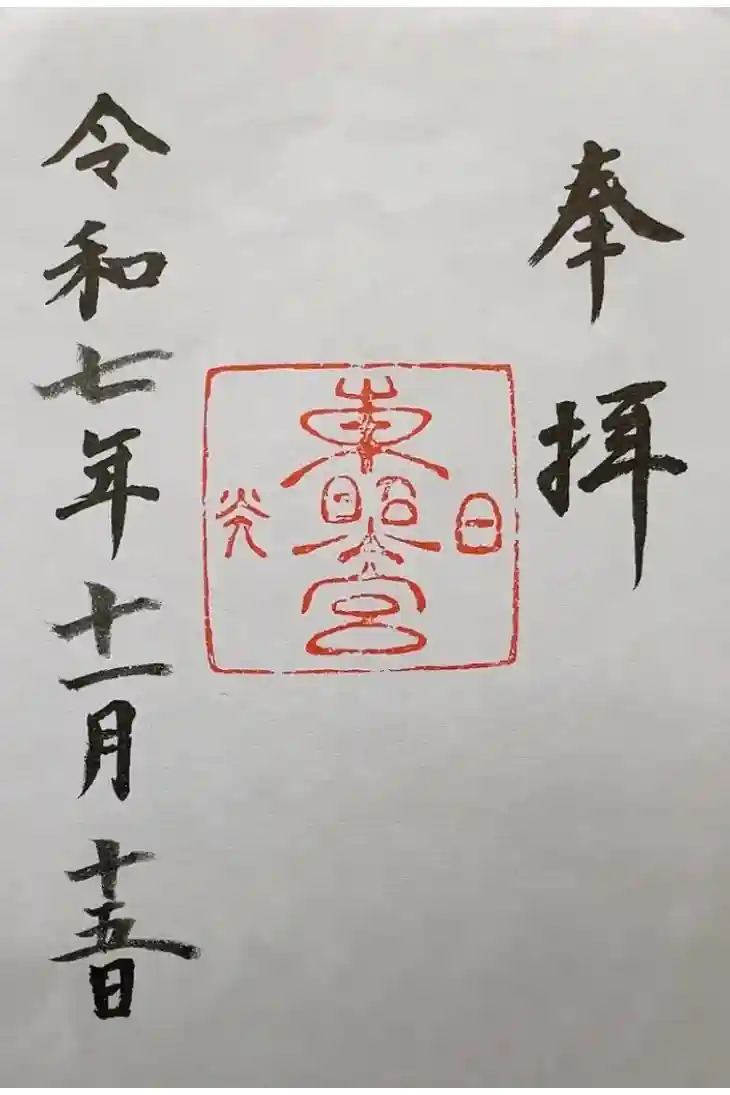 奉拝
日光
東照宮
令和七年十一月十五日